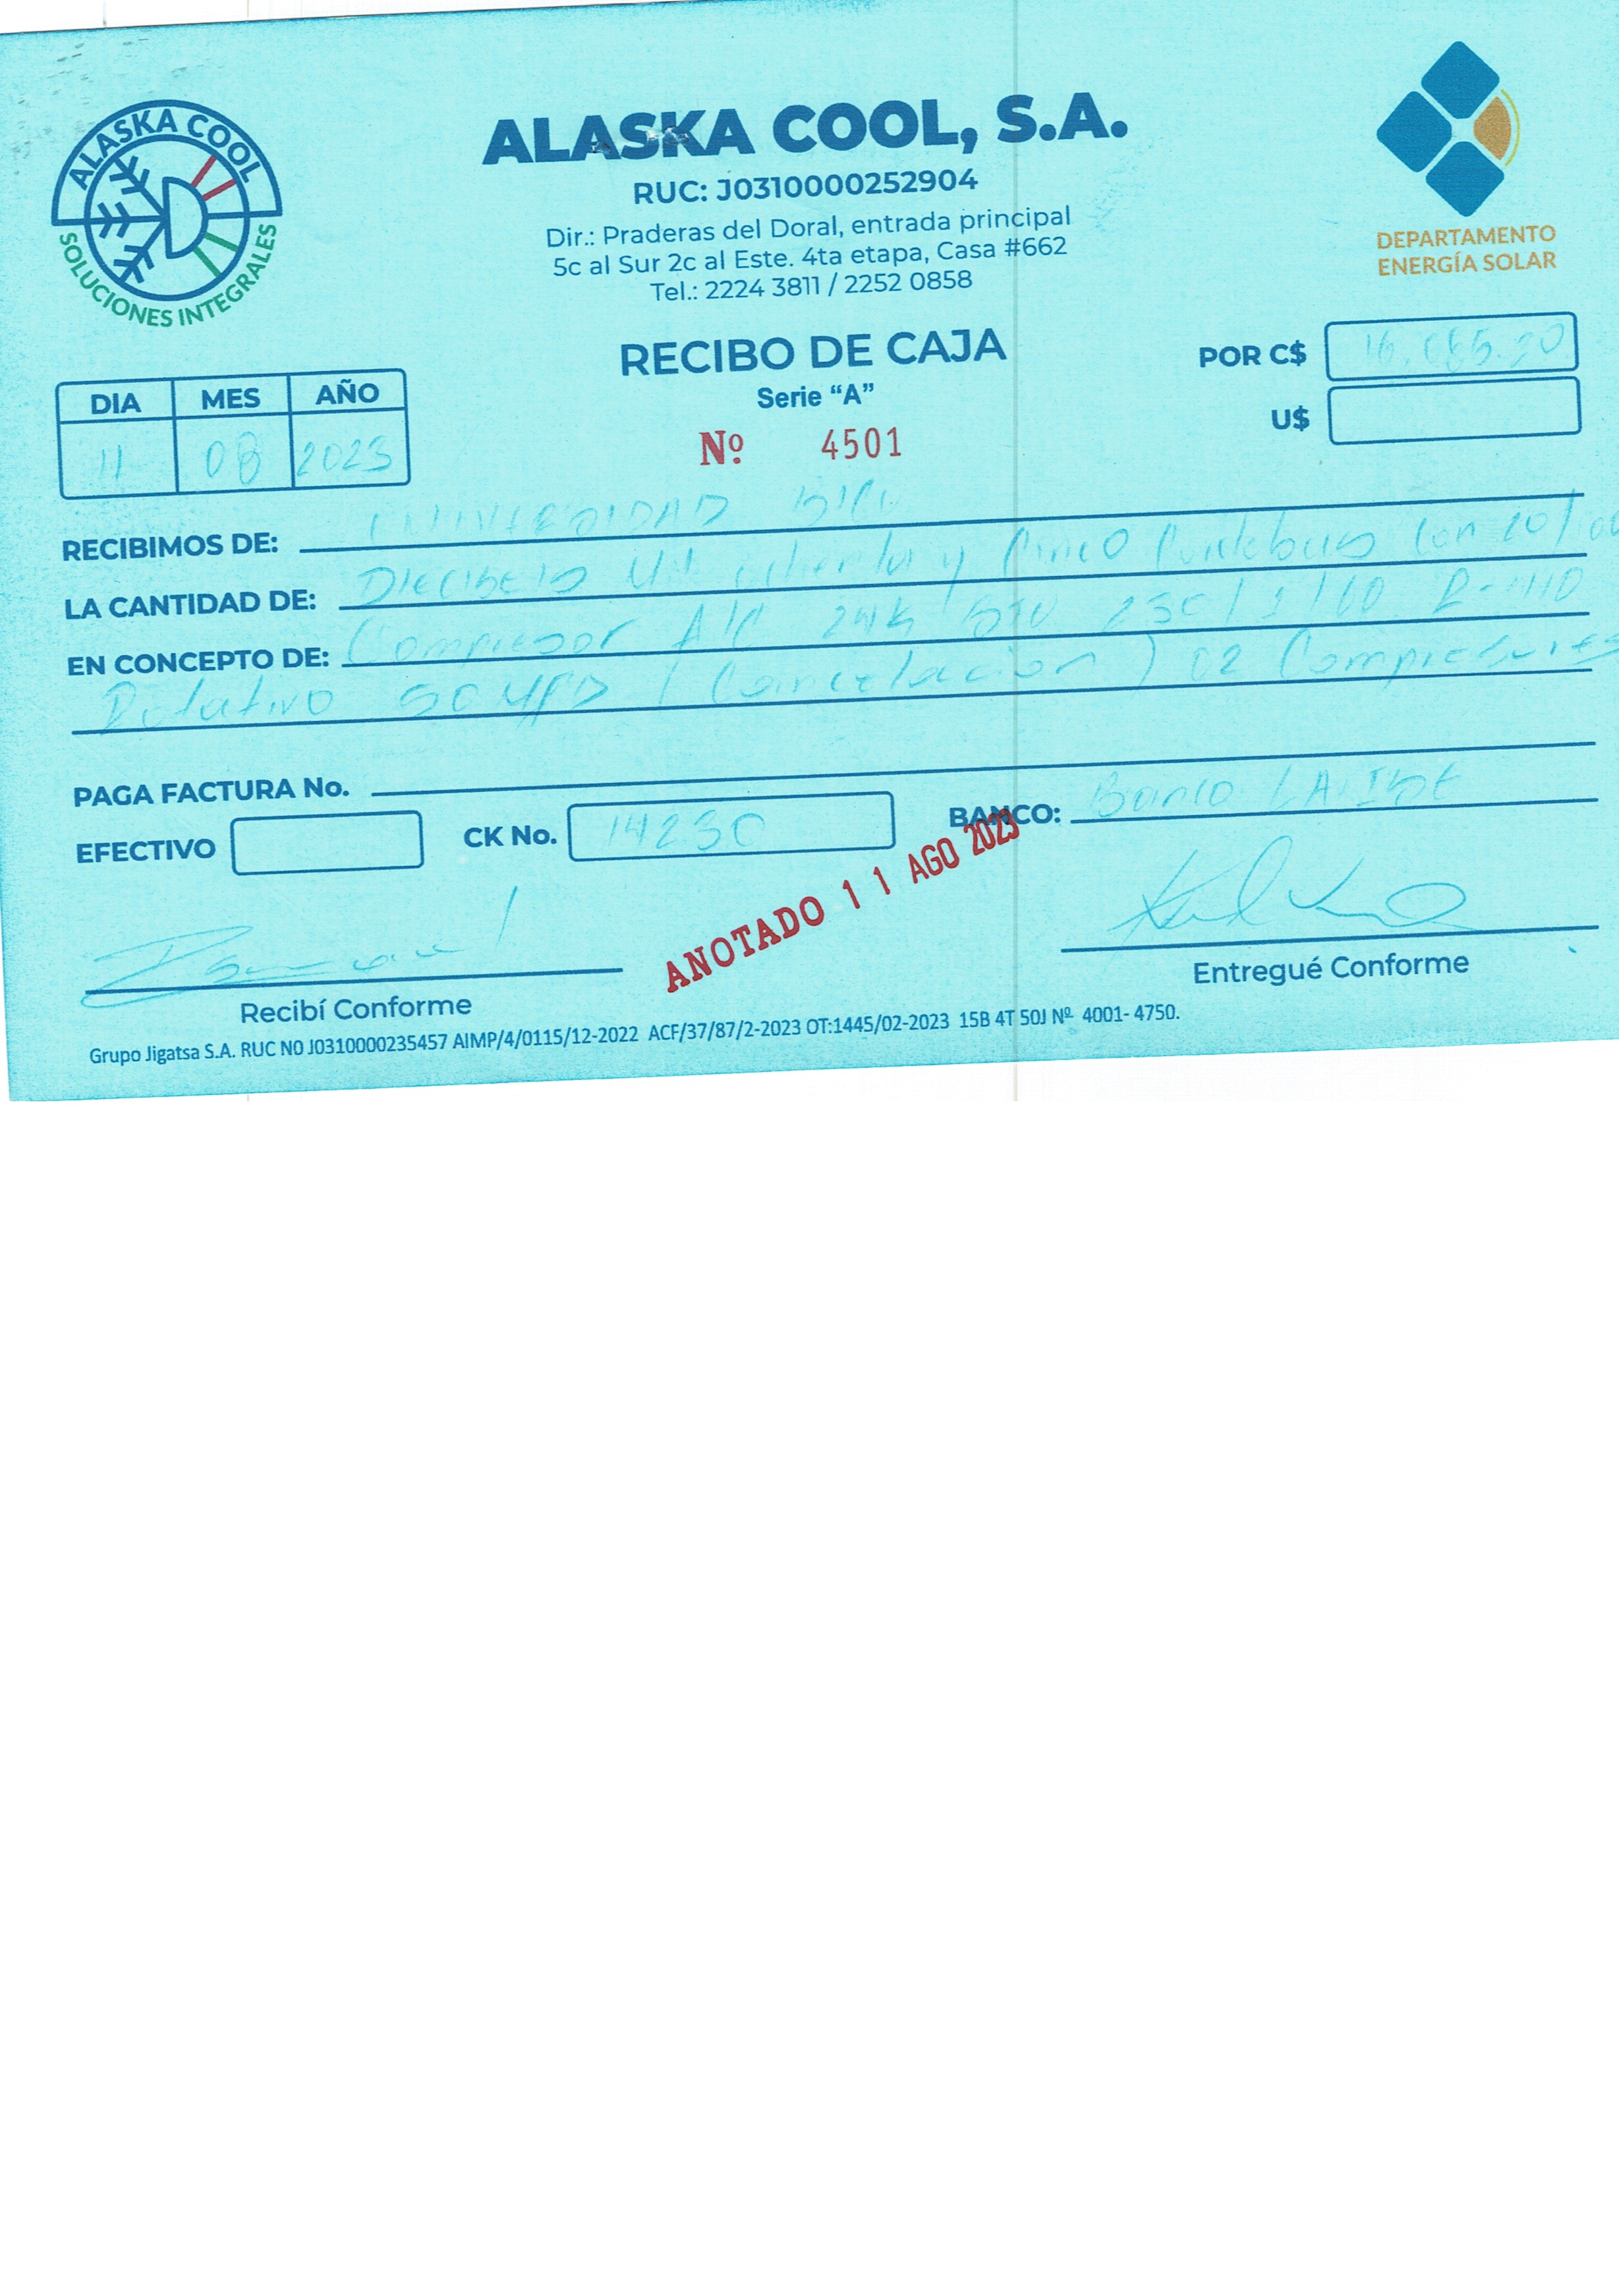 ALASKA COOL
SOLUCIONES INTEGRALES
ALASKA COOL, S.A.
RUC: J0310000252904
Dir.: Praderas del Doral, entrada principal
5c al Sur 2c al Este. 4ta etapa, Casa #662
Tel.: 2224 3811 / 2252 0858
DEPARTAMENTO
ENERGÍA SOLAR
RECIBO DE CAJA
Serie “A”
Nº 4501
POR C$ 16.085.20
U$
DIA MES AÑO
11 08 2023
RECIBIMOS DE: UNIVERSIDAD
LA CANTIDAD DE: Dieciseis Mil ochenta y Cinco Con 20/
EN CONCEPTO DE: Compresor A/C 24K BTU 230/1/60 R-410
Rotativo (Cancelacion) 02 Compresores
PAGA FACTURA No.
EFECTIVO CK No. 14230 BANCO: Banco LAFISE
ANOTADO 11 AGO 2023
Recibí Conforme
Entregué Conforme
Grupo Jigatsa S.A. RUC N0 J0310000235457 AIMP/4/0115/12-2022 ACF/37/87/2-2023 OT:1445/02-2023 15B 4T 50J Nº 4001- 4750.